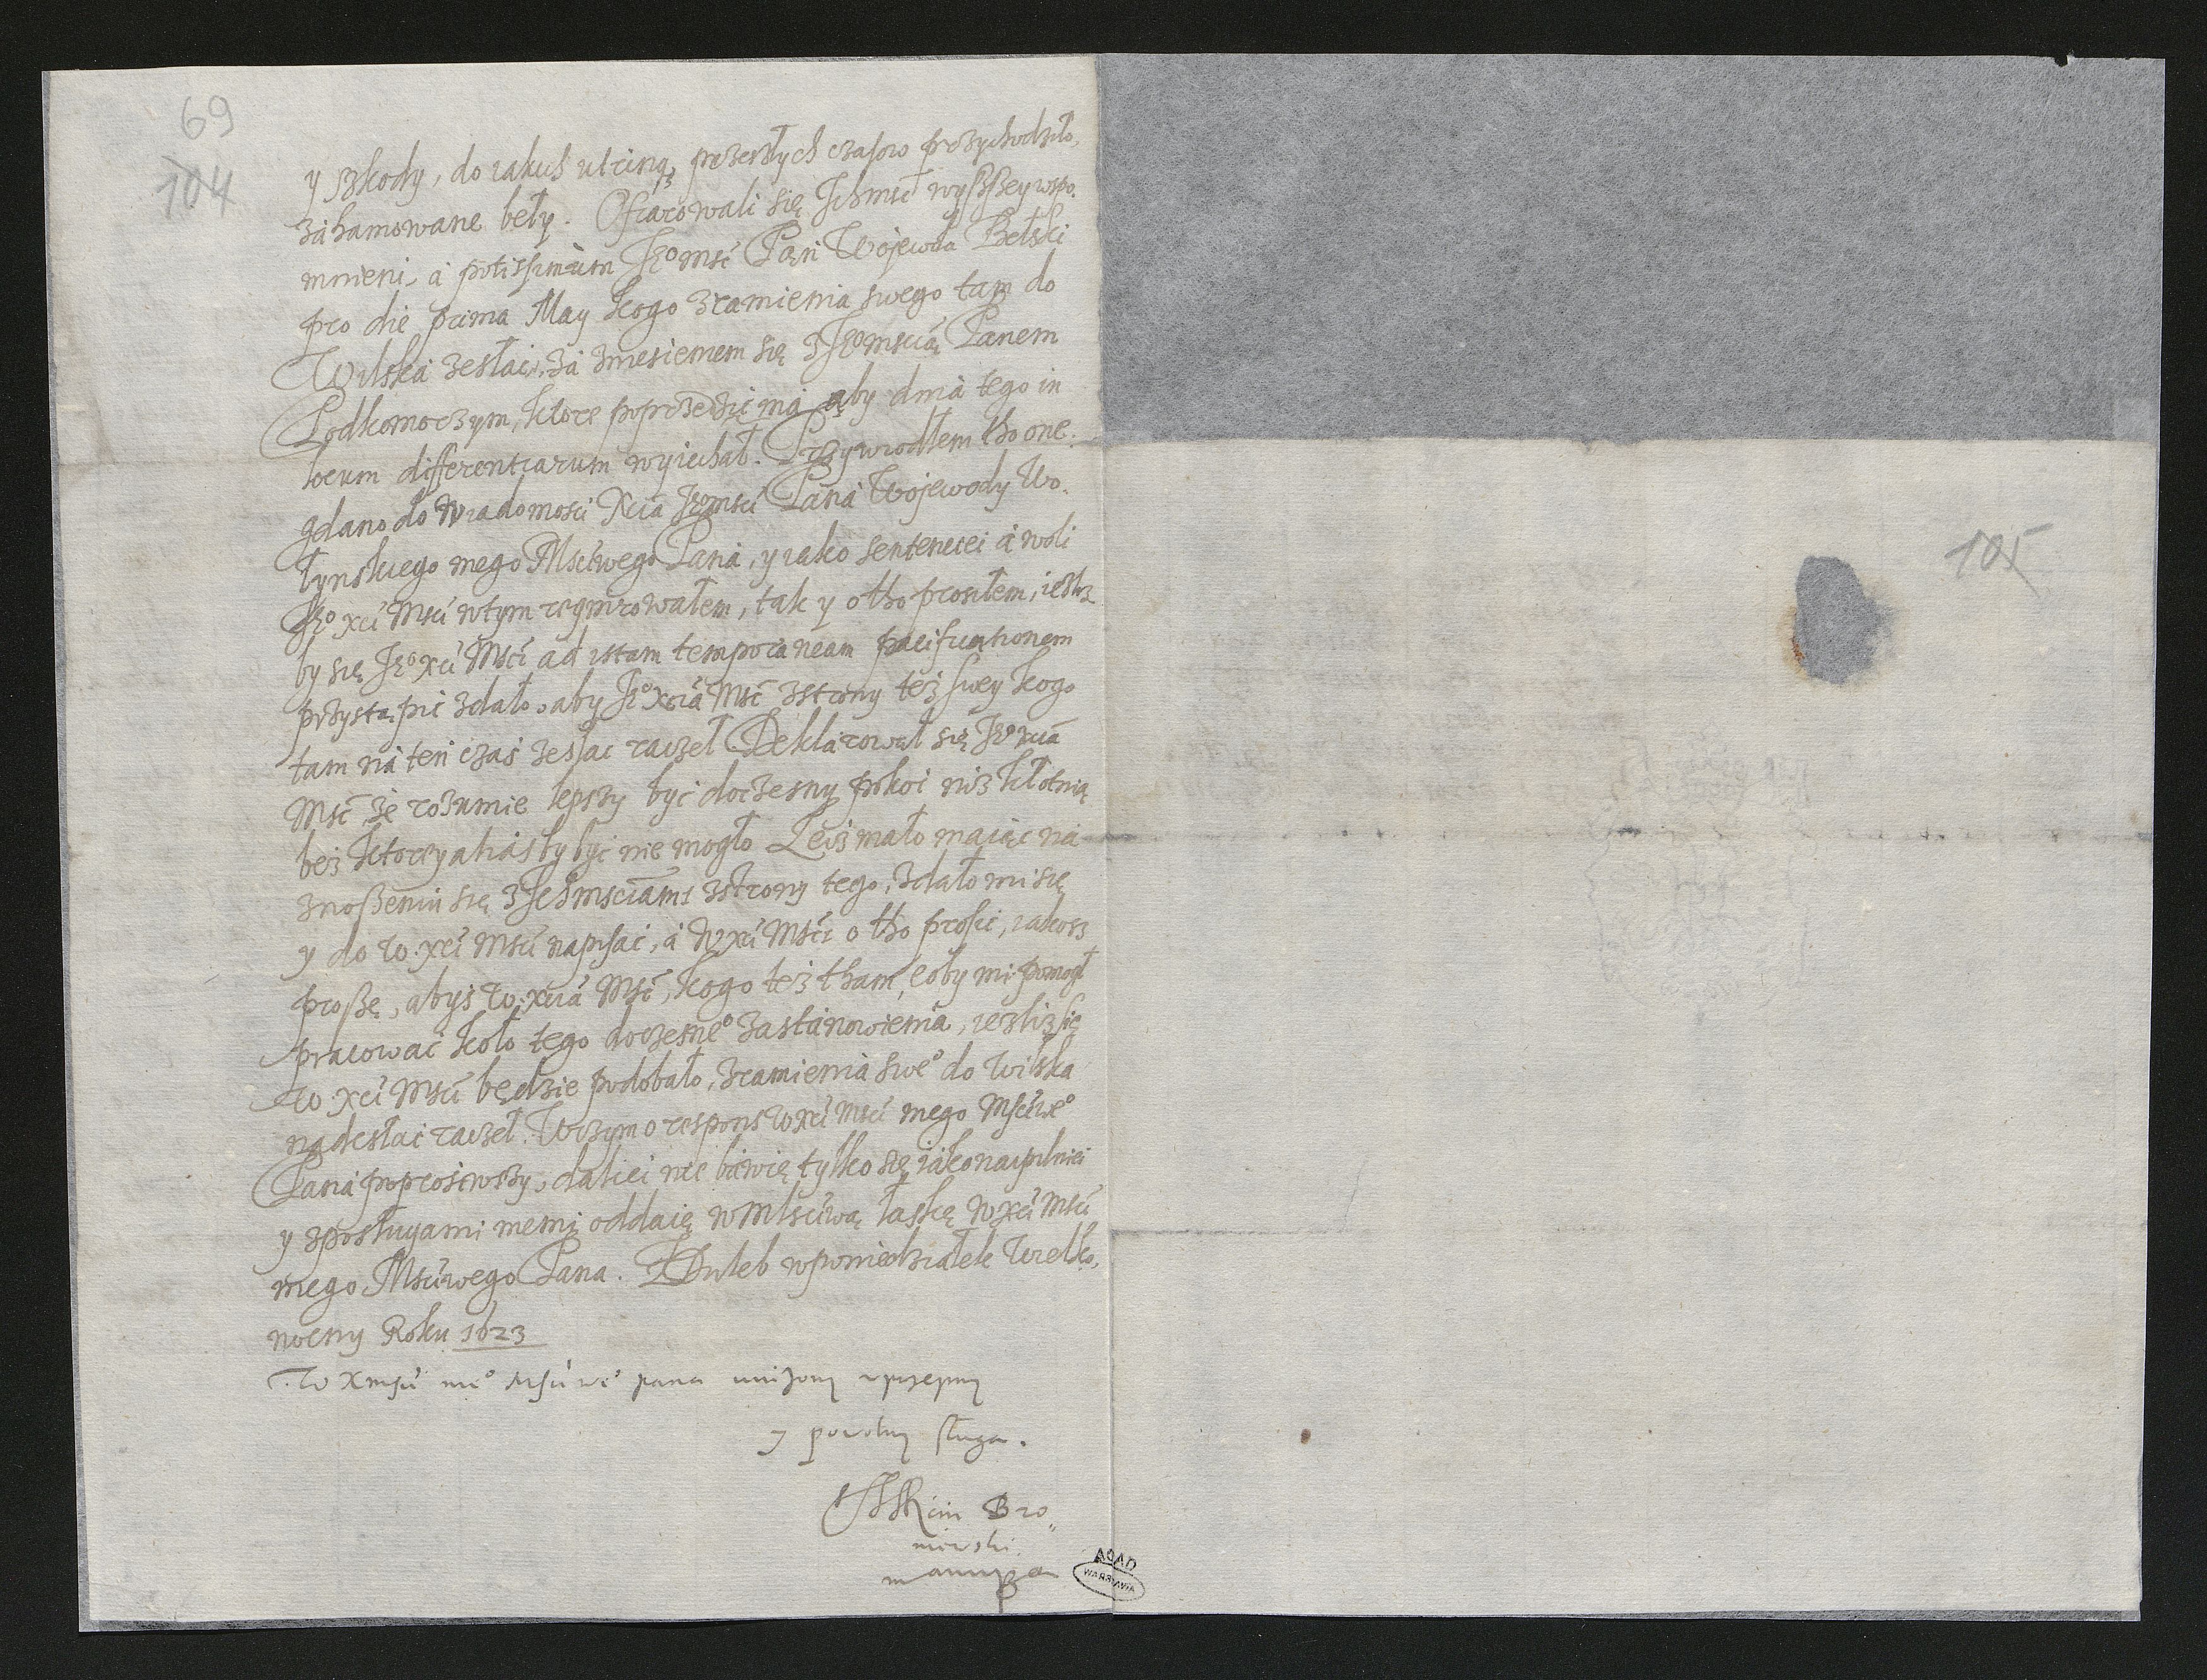 69
104
y szkody, do iakich utcinq przeszłych czasow przychodziło,
zahamowane beły. Ofiarowali się Ichmsc wyßßey wspo-
mnieni, a potissimum Jego Msc Pan Wojewoda Bełski
pro die prima May kogo zramienia swego tam do
Wilska zesłać, za zniesieniem się z Jego mscią Panem
Podkomorzym, ktore poprzedzić ma aby dnia tego in
locum differentiarum wyiechał. Przywiodłem tho one-
gdano do wiadomosci Xcia Jego msci Pana Wojewody Wo-
łynskiego mego Msciwego Pana, y iako sentencei a woli
Jego xci Msci w tym requirowałem, tak y o tho prosiłem, iesliz
by się Jego xci Msci ad istam temporaneam pacificationem
przystąpić zdało, aby Jego xcia Msc z strony też swey kogo
tam na ten czas zesłac raczeł. Deklarował się Jego xcia
Msc, że rozumie lepszy być doczesny pokoi niz kłotnią
bez ktorey alias by być nie mogło. Lecz mało maiąc na
znoßeniu się z Ichmsciami z strony tego, zdało mi się
y do W. xci Msci napisać, a W xci Msci o tho prosić, iakosz
proßę, abyś W. xcia Msc, kogo też tham, coby mi pomogł
pracować koło tego doczesnego zastanowienia, iezliz się
W. xci Msci będzie podobało, zramienia swego do Wilska
nadesłać raczeł. W czym o respons W xci Msci mego Msciwego
Pana poprosiwszy, daliei nie bawię tylko się iako naypilniei
y z posługami memi oddaię w Msciwą łaskę W xci Msci
mego Msciwego Pana. Z Duleb w poniedziałek Wielko-
nocny Roku 1623
W X msci mego Msciwego pana unizony uprzejmy
y powolny sługa.
Bro
niewski
manu ppa
AGAD
WARSZAWA
105